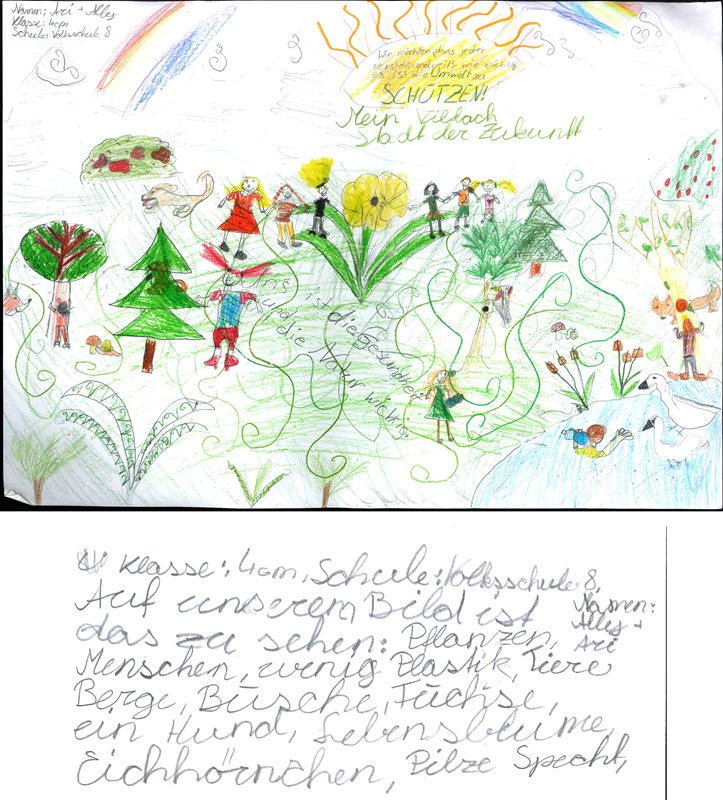 Namen: Ari + Alles
Klasse: 4cm
Schule: Volksschule 8
Wir möchten, dass jeder
versteht und weiß wie wichtig
es ist die Umwelt zu
SCHÜTZEN!
Mein Villach
Stadt der Zukunft
Uns ist die Gesundheit
und die Natur wichtig.
Klasse: 4cm, Schule: Volksschule 8,
Namen:
Alles +
Ari
Auf unserem Bild ist
das zu sehen: Pflanzen,
Menschen, wenig Plastik, Tiere
Berge, Büsche, Füchse,
ein Hund, Lebensblume,
Eichhörnchen, Pilze Specht,